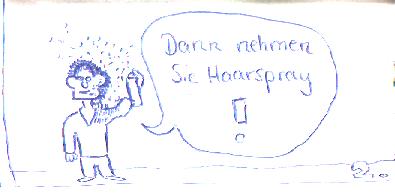 Dann nehmen
Sie Haarspray
!